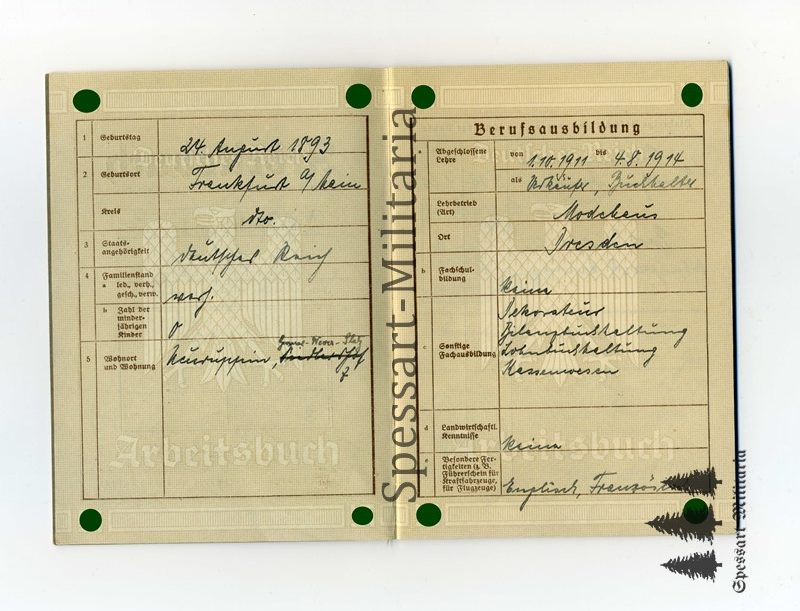 1 Geburtstag 24. August 1893
2 Geburtsort Frankfurt a/Main
Kreis dto.
3 Staats-
angehörigkeit Deutsches Reich
4 Familienstand
a led., verh.,
gesch., verw. verh.
b Zahl der
minder-
jährigen
Kinder 0
5 Wohnort
und Wohnung Neuruppin,
7
Arbeitsbuch
Spessart-Militaria
Berufsausbildung
a Abgeschlossene
Lehre von 1.10.1911 bis 4.8.1914
als Verkäufer, Buchhalter
Lehrbetrieb
(Art) Modehaus
Ort Dresden
b Fachschul-
bildung keine
c Sonstige
Fachausbildung Dekorateur
Bilanzbuchhaltung
Lohnbuchhaltung
Kassenwesen
d Landwirtschaftl.
Kenntnisse keine
Besondere Fer-
tigkeiten (z. B.
Führerschein für
Kraftfahrzeuge,
für Flugzeuge) Englisch,
Arbeitsbuch
Spessart Militaria